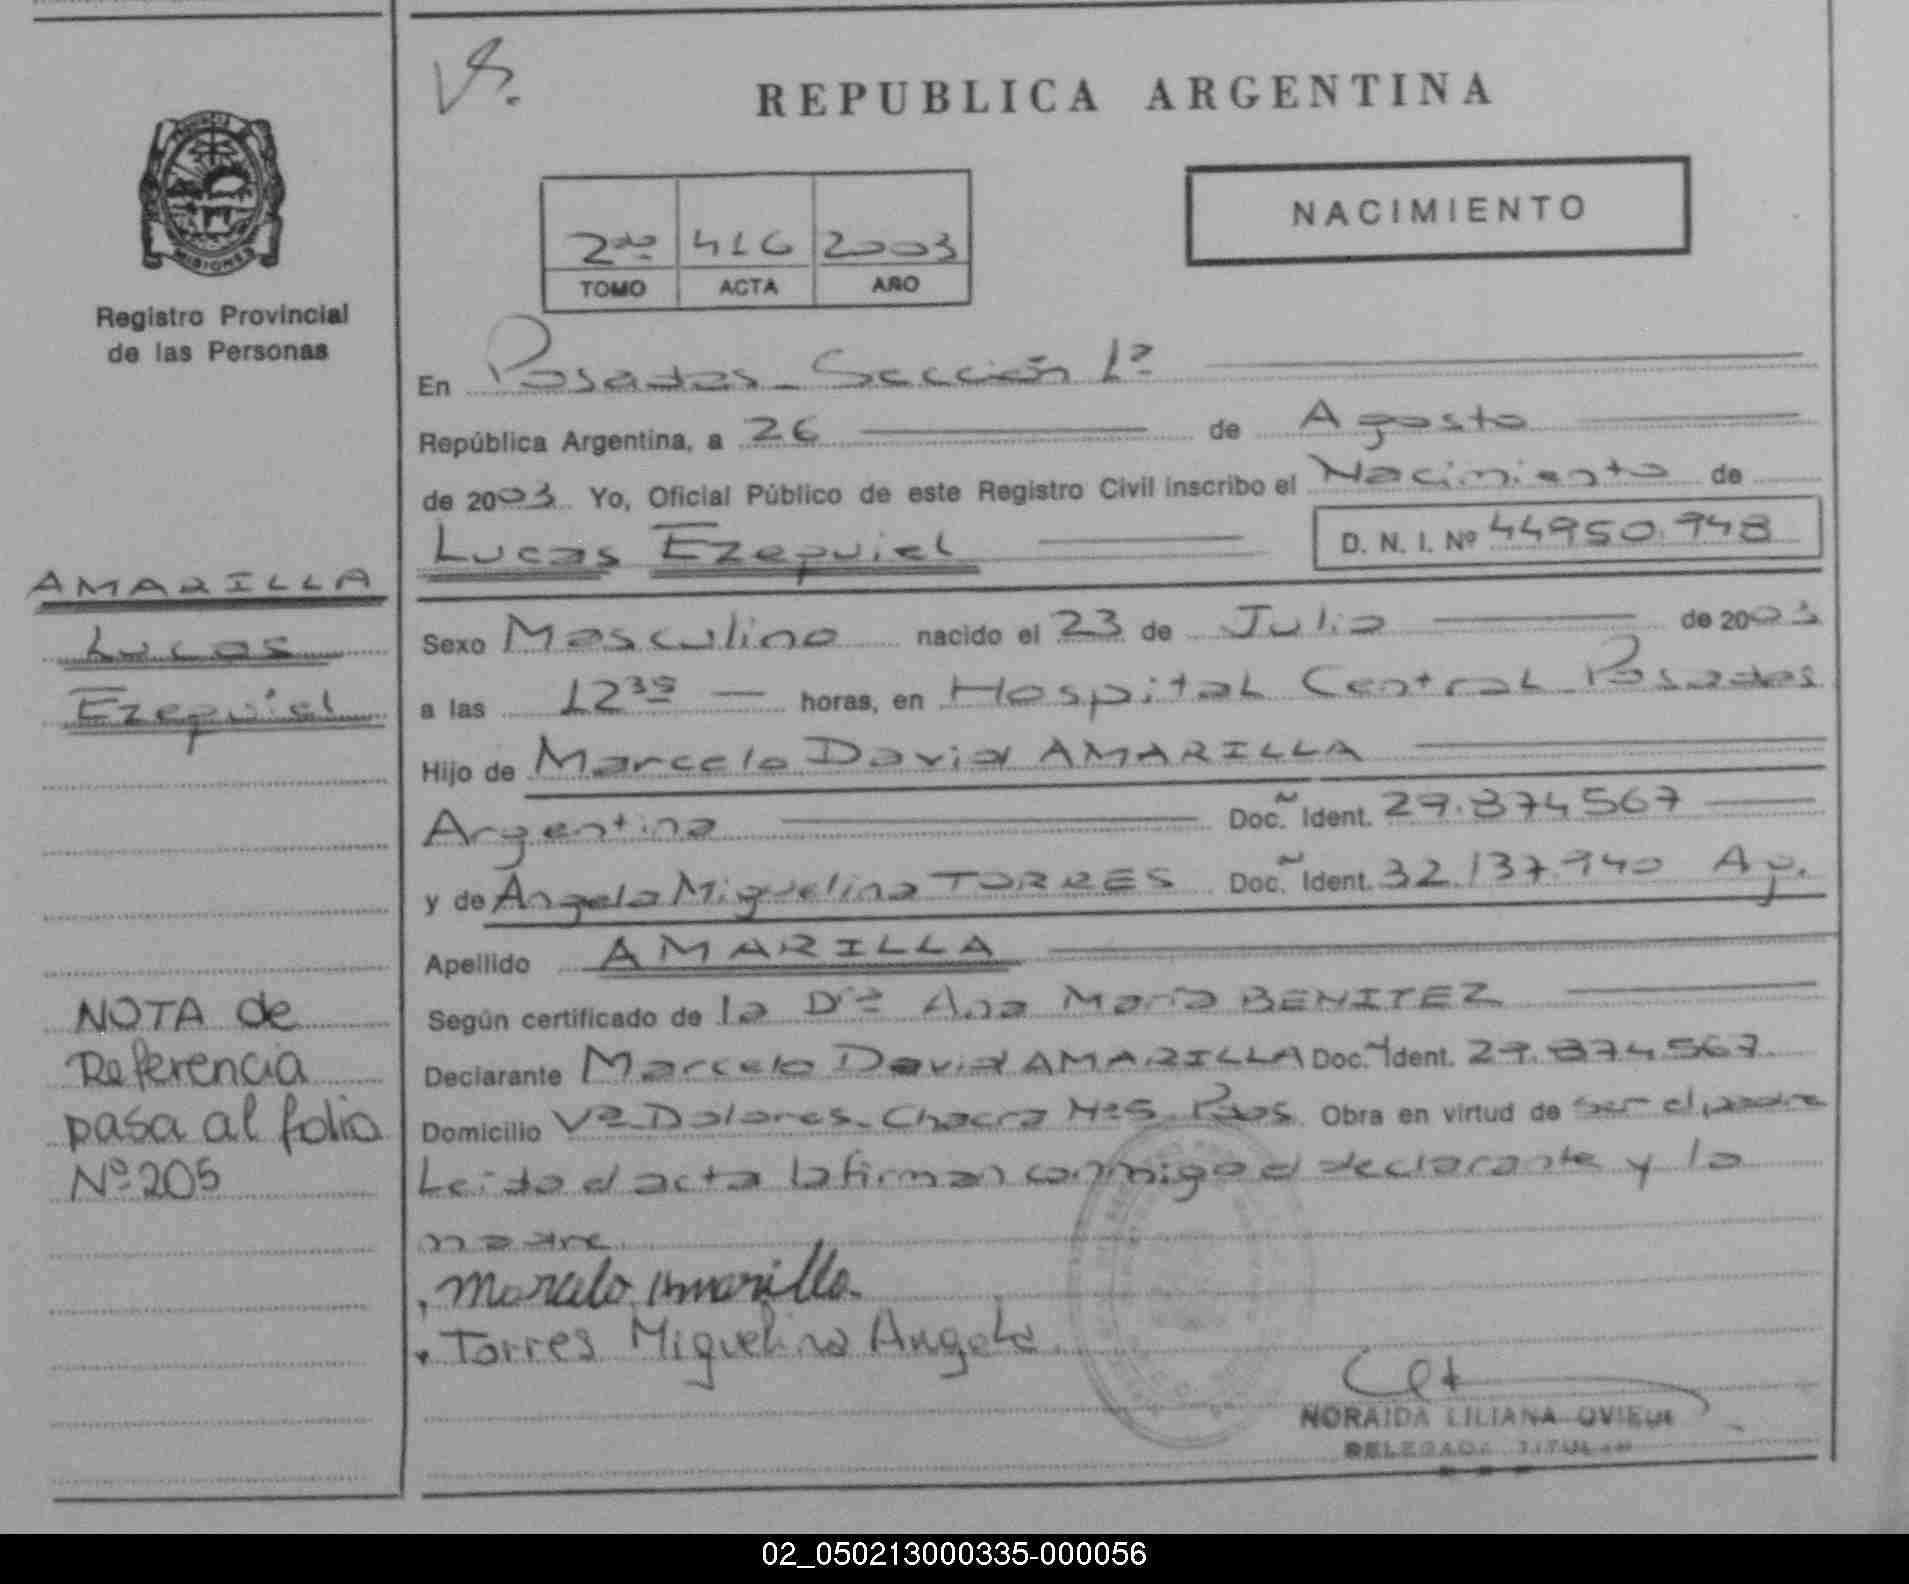 Vs.
REPUBLICA ARGENTINA
NACIMIENTO
2do 416 2003
TOMO ACTA AÑO
PROVINCIA DE MISIONES
Registro Provincial
de las Personas
En Posadas - Sección 1ª
República Argentina, a 26 de Agosto
de 2003 Yo, Oficial Público de este Registro Civil inscribo el Nacimiento de
Lucas Ezequiel D. N. I. Nº 44950.948
AMARILLA
Lucas
Ezequiel
Sexo Masculino nacido el 23 de Julio de 2003
a las 12 35 horas, en Hospital Central Posadas
Hijo de Marcelo David AMARILLA
Argentina Doc. Ident. 29.874567
y de Angela Miguelina TORRES Doc. Ident. 32.137.940 Ap.
Apellido AMARILLA
Según certificado de la Drª Ana María BENITEZ
Declarante Marcelo David AMARILLA Doc. Ident. 29.874.567
Domicilio Vª Dolores - Chacra Nº 5 - Pdas. Obra en virtud de ser el padre
Leida el acta la firman conmigo el declarante y la
madre
Marcelo Amarilla.
Torres Miguelina Angela.
NOTA de
Referencia
pasa al folio
Nº 205
NORAIDA LILIANA OVIEDO
DELEGADA TITULAR
02_050213000335-000056